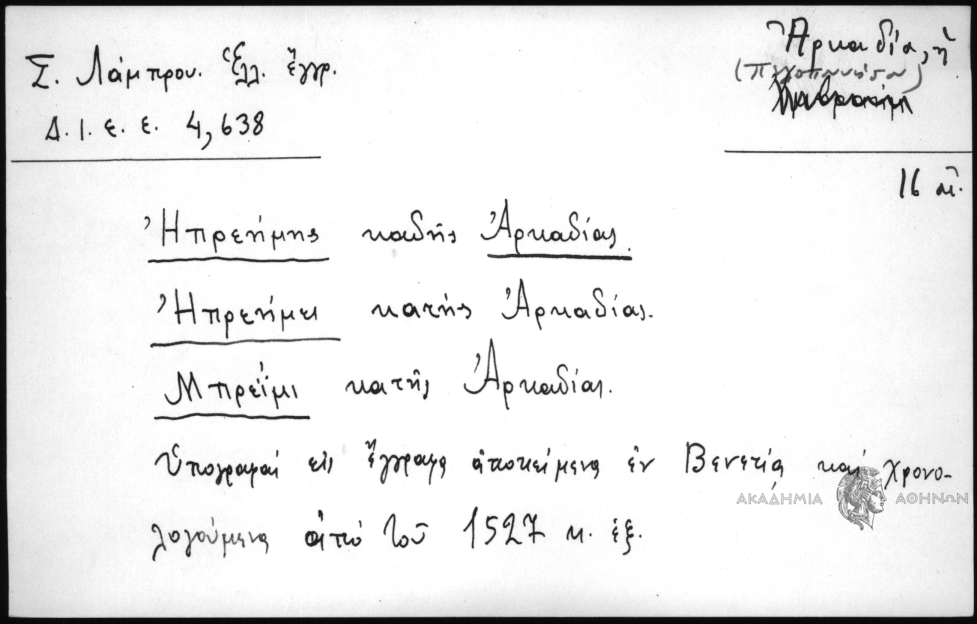 Σ. Λάμπρου. Ἑλλ. ἔγγρ.
Δ.Ι.Ε.Ε. 4,638
Ἀρκαδία, ἡ
(Πελοπόννησον)
16 αἰ.
Ἠπρεήμης καδῆς Ἀρκαδίας.
Ἠπρεήμει κατῆς Ἀρκαδίας.
Μπρεΐμι κατῆς Ἀρκαδίας.
Ὑπογραφαί εἰς ἔγγραφα ἀποκείμενα ἐν Βενετίᾳ καί χρονο-
λογούμενα ἀπό τοῦ 1527 κ. ἑξ.
ΑΚΑΔΗΜΙΑ ΑΘΗΝΩΝ